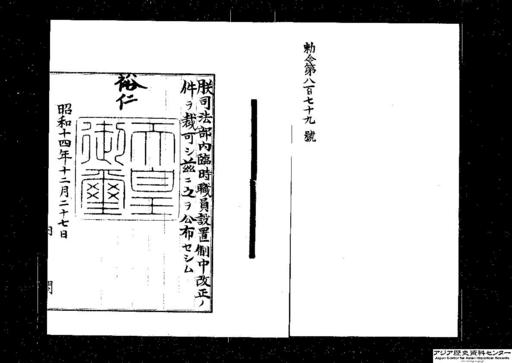 勅令第八百七十九號
朕司法部內臨時職員設置制中改正ノ
件ヲ裁可シ茲ニ之ヲ公布セシム
裕仁
天皇
御璽
昭和十四年十二月二十七日
内閣
アジア歴史資料センター
Japan Center for Asian Historical Records